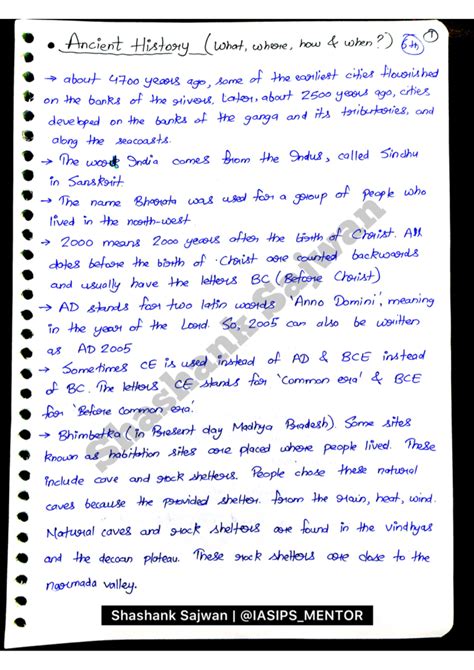 • Ancient History (What, where, how & when?) 6th 1
→ about 4700 years ago, some of the earliest cities flourished
on the banks of the rivers. Later, about 2500 years ago, cities
developed on the banks of the ganga and its tributaries, and
along the seacoasts.
→ The word India comes from the Indus, called Sindhu
in Sanskrit
→ The name Bharata was used for a group of people who
lived in the north-west
→ 2000 means 2000 years after the birth of Christ. All
dates before the birth of Christ are counted backwards
and usually have the letters BC (Before Christ)
→ AD stands for two latin words 'Anno Domini', meaning
in the year of the Lord. So, 2005 can also be written
as AD 2005
→ Sometimes CE is used instead of AD & BCE instead
of BC. The letters CE stands for 'Common era' & BCE
for 'Before Common era.'
→ Bhimbetka (in Present day Madhya Pradesh). Some sites
known as habitation sites are placed where people lived. These
include cave and rock shelters. People chose these natural
caves because the provided shelter from the rain, heat, wind.
Natural caves and rock shelters are found in the vindhyas
and the deccan plateau. These rock shelters are close to the
narmada valley.
Shashank Sajwan
Shashank Sajwan | @IASIPS_MENTOR